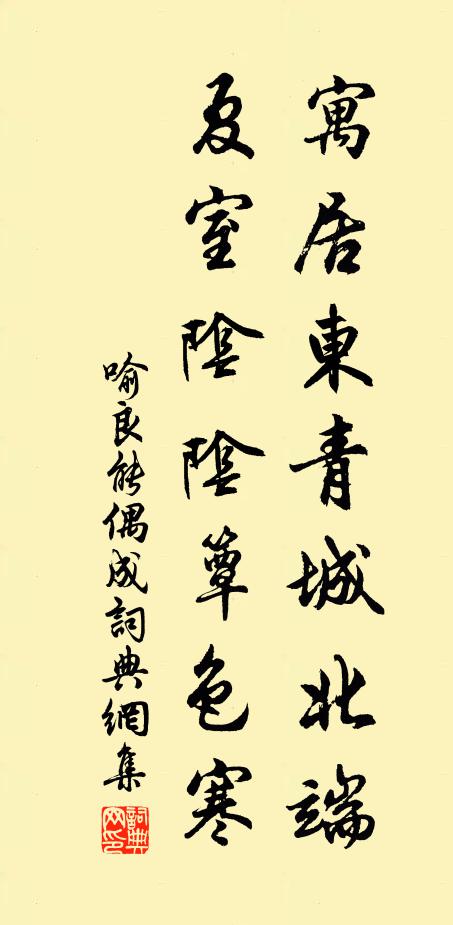 寓居東青城北端
夏室陰陰簟色寒
喻良能偶成詞典網集
詞典網印